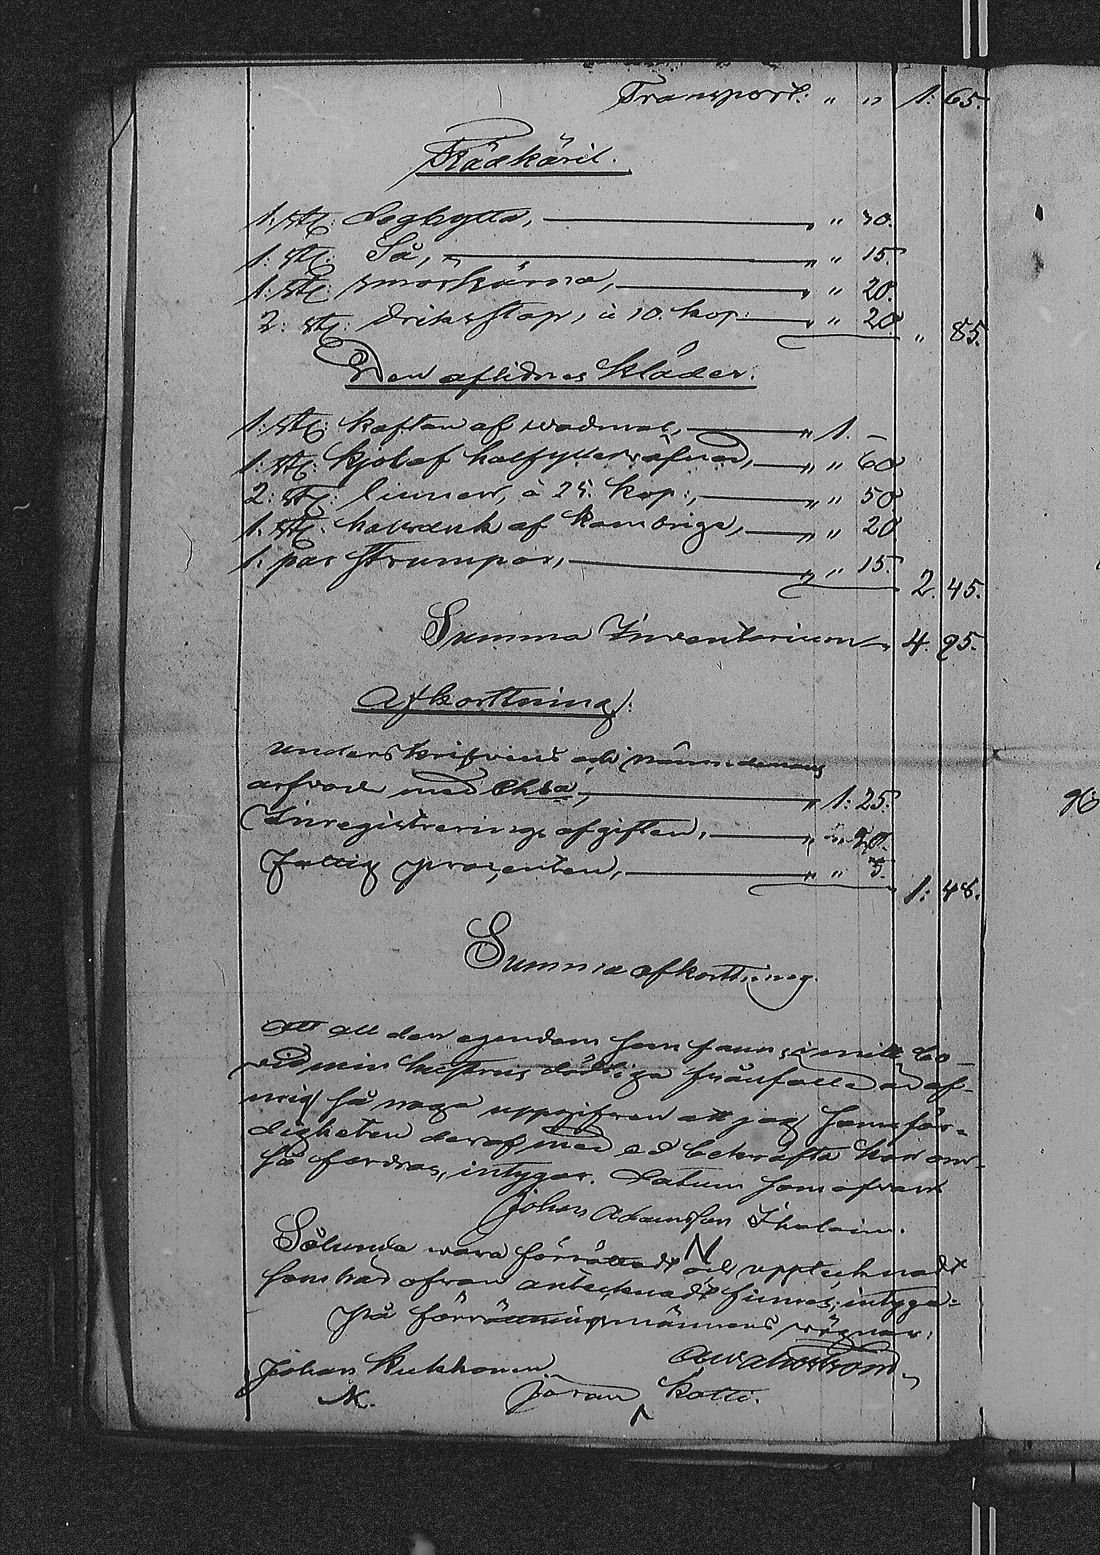 Transport: " " 1. 65.
Trädkäril.
1: stk: Degbytta, " " 30.
1: stk: Så, " " 15.
1: stk: smörkärna, " " 20.
2: stk: drikstop, à 10. kop: " " 20 " 85.
Den aflidnes kläder.
1: stk: kaftan af wadmal, " 1. –
1: stk: kjol af " " 60
2: stk: linner, à 25. kop:, " " 50
1: stk: halsduk af kambrige, " " 20
1: par strumpor, " " 15. 2. 45.
Summa Inventarium 4. 95.
Afkorttning:
underskrifvens och nämndemans
arfvode med " 1: 25.
Inregistrerings afgiften, " " 20.
Fattig prozenten, " " 3. 1: 48.
Summa afkorttning.
Att all den egendom som fans i mitt bo
vid min hustrus dödliga frånfälle är af
mig så noga uppgifven att jag sanfär=
digheten deraf med ed bekräfta kan om
så fordras, intygar. Datum som ofvan
Johan Adamsson Ihalain.
Sålunda wara förrättadt och upptecknadt
som här ofvan antecknadt finnes, intyga=
på förrättningsmännens vägnar:
Johan Kukkonen
Jöran Kotti.